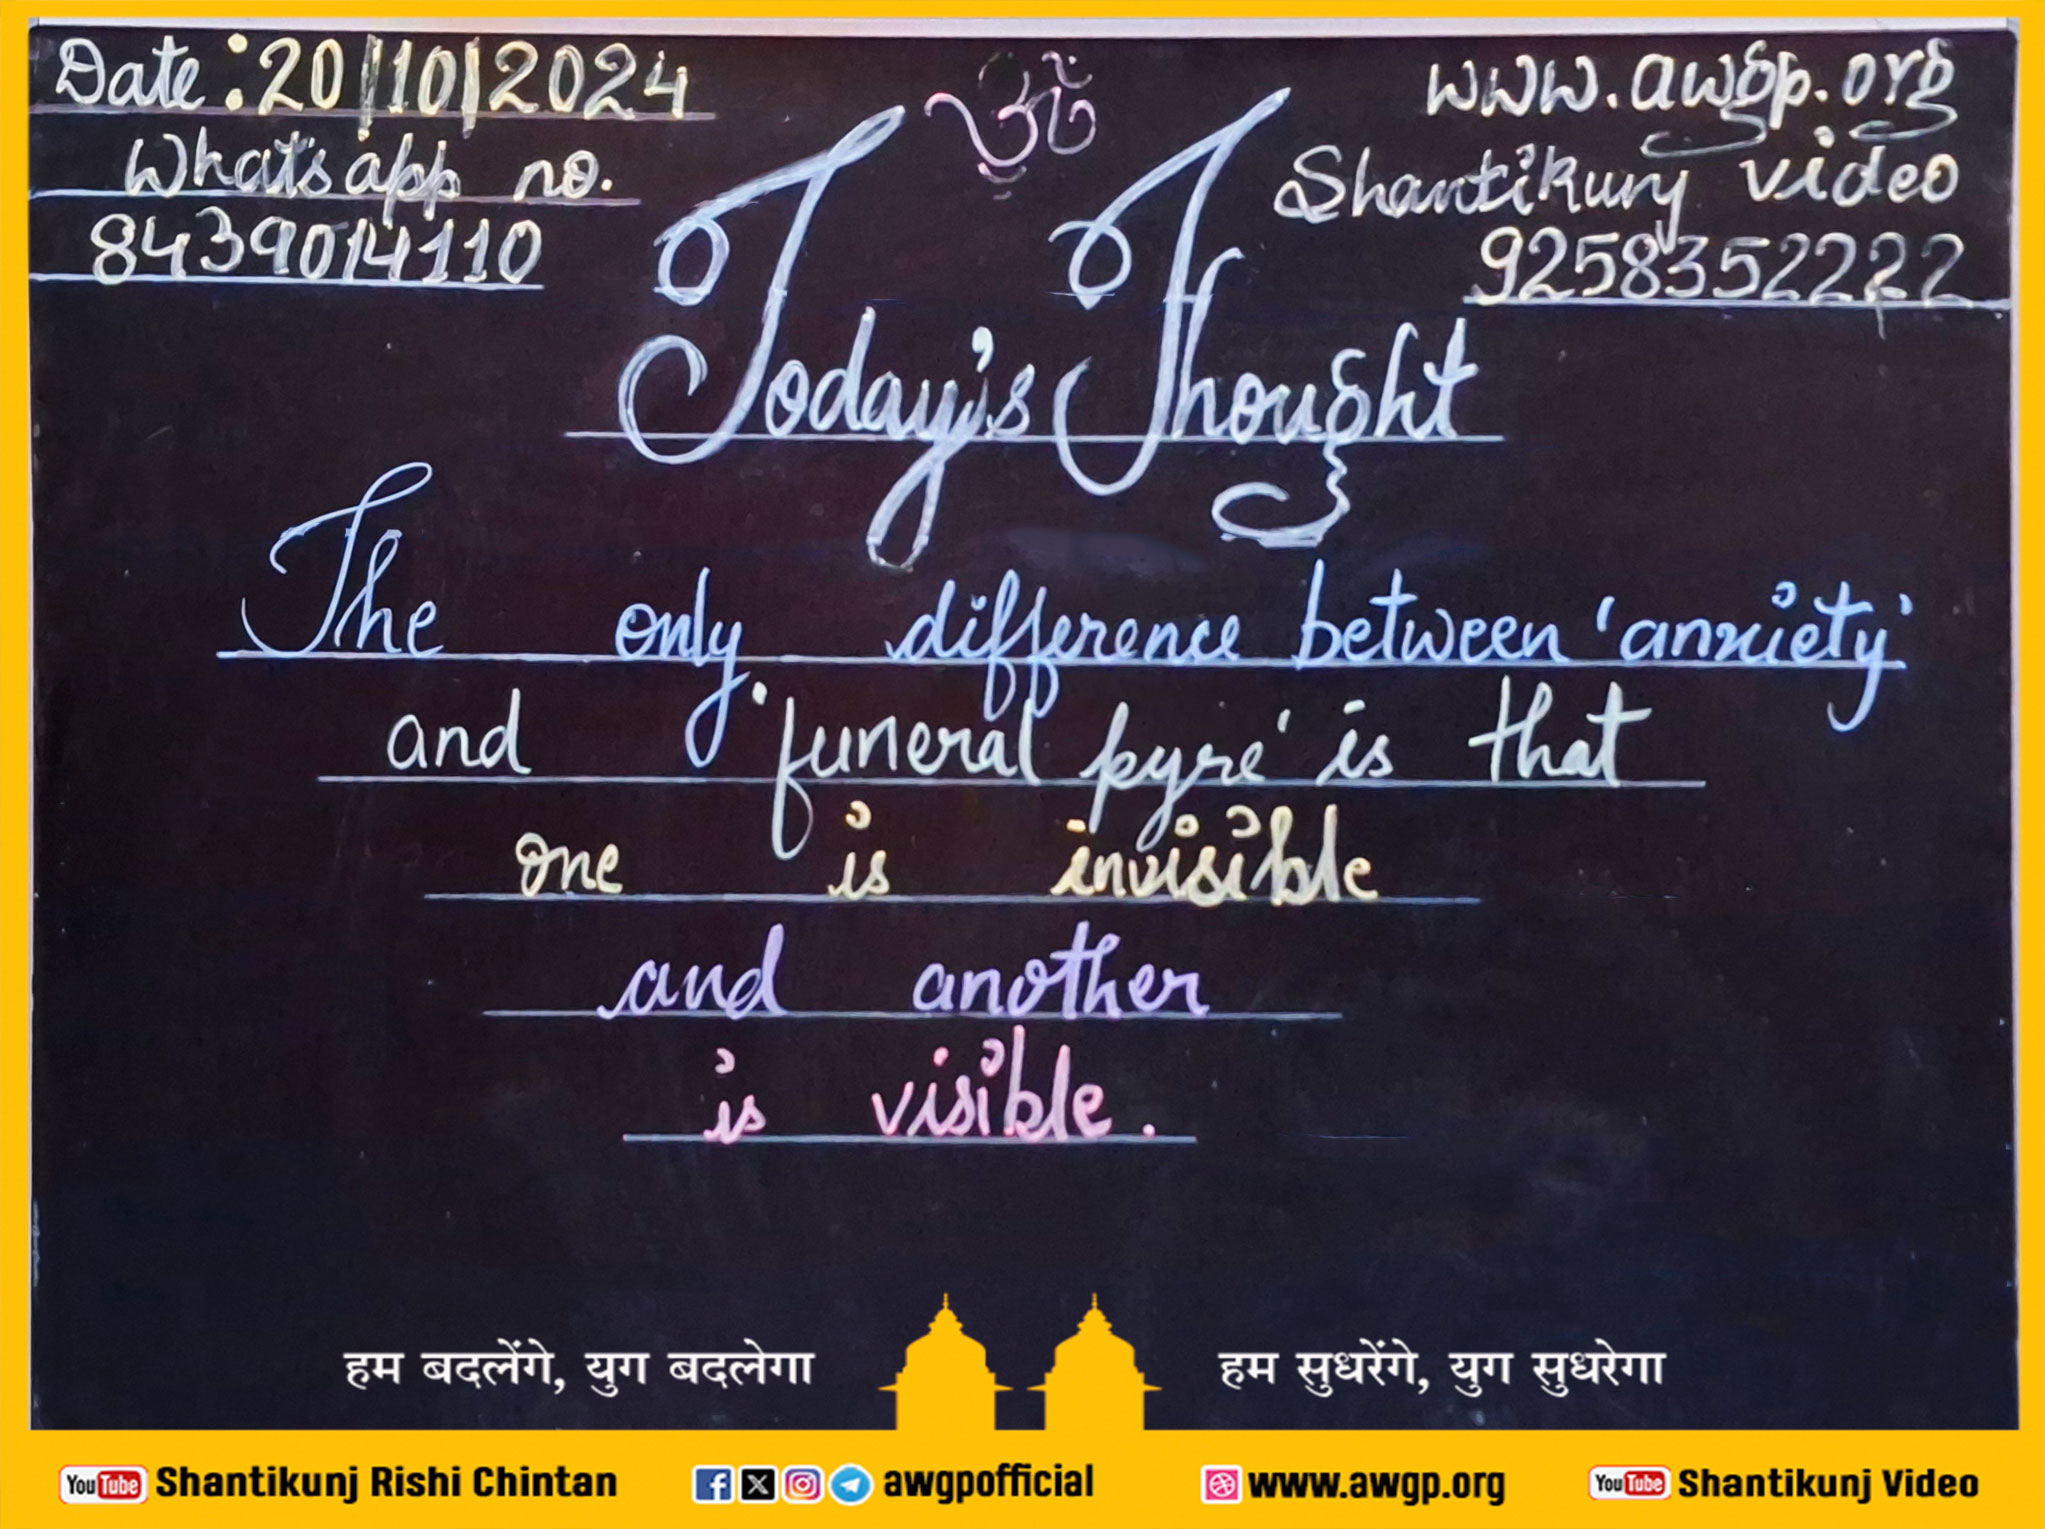 Date: 20/10/2024
What's app no.
8439014110
ॐ
www.awgp.org
Shantikunj video
9258352222
Today's Thought
The only difference between 'anxiety'
and 'funeral pyre' is that
one is invisible
and another
is visible.
हम बदलेंगे, युग बदलेगा
हम सुधरेंगे, युग सुधरेगा
YouTube Shantikunj Rishi Chintan
awgpofficial
www.awgp.org
YouTube Shantikunj Video